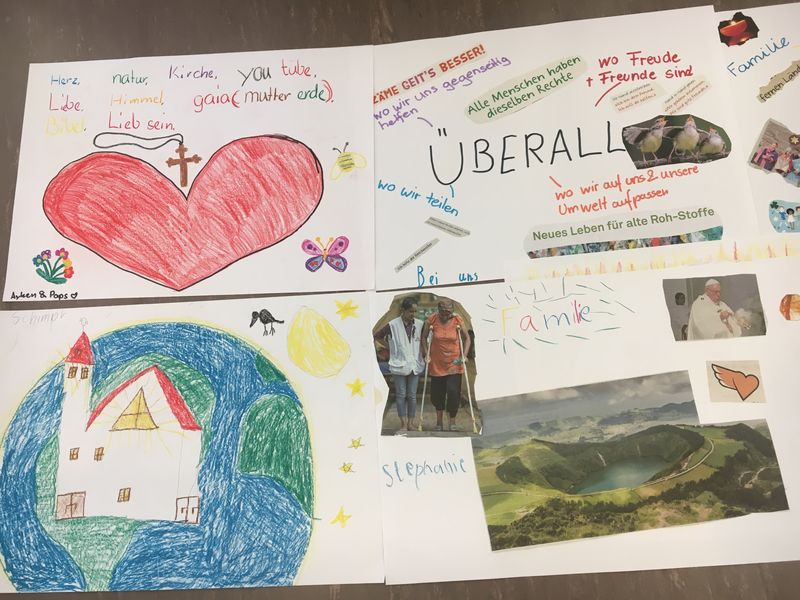 Herz, natur, Kirche, you tube,
Liebe, Himmel, gaia (mutter erde),
Bibel, Lieb sein.
Ayleen & Paps
ZÄME GEIT'S BESSER!
wo wir uns gegenseitig
helfen
Alle Menschen haben
dieselben Rechte
wo Freude
+ Freunde sind
ÜBERALL
wo wir teilen
wo wir auf uns & unsere
Umwelt aufpassen
Neues Leben für alte Roh-Stoffe
Bei uns
Familie
fernen Land
Schimpf
Familie
Stephanie